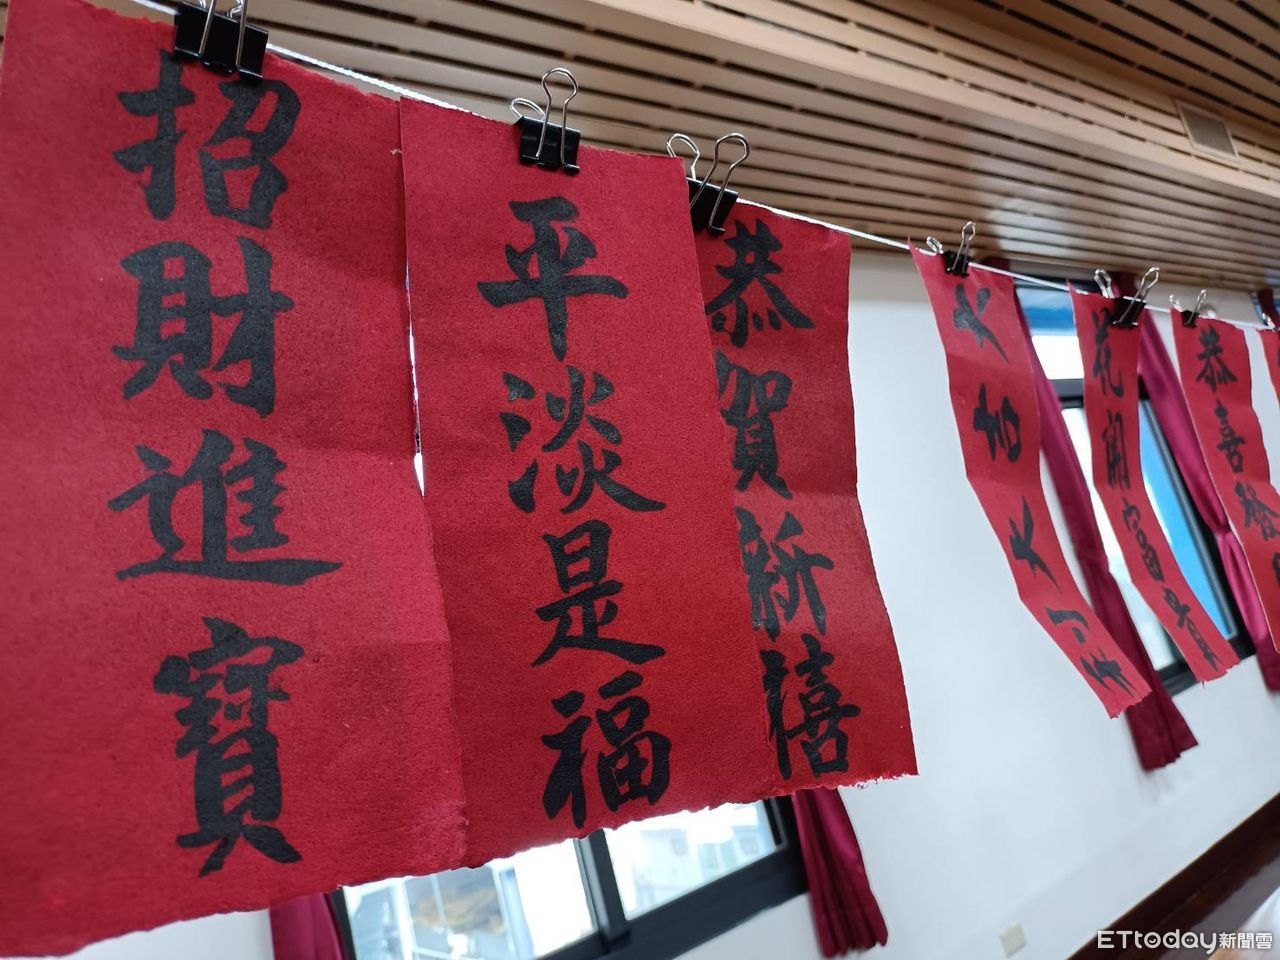 招財進寶
平淡是福
恭賀新禧
花開富貴
恭喜發
ETtoday新聞雲